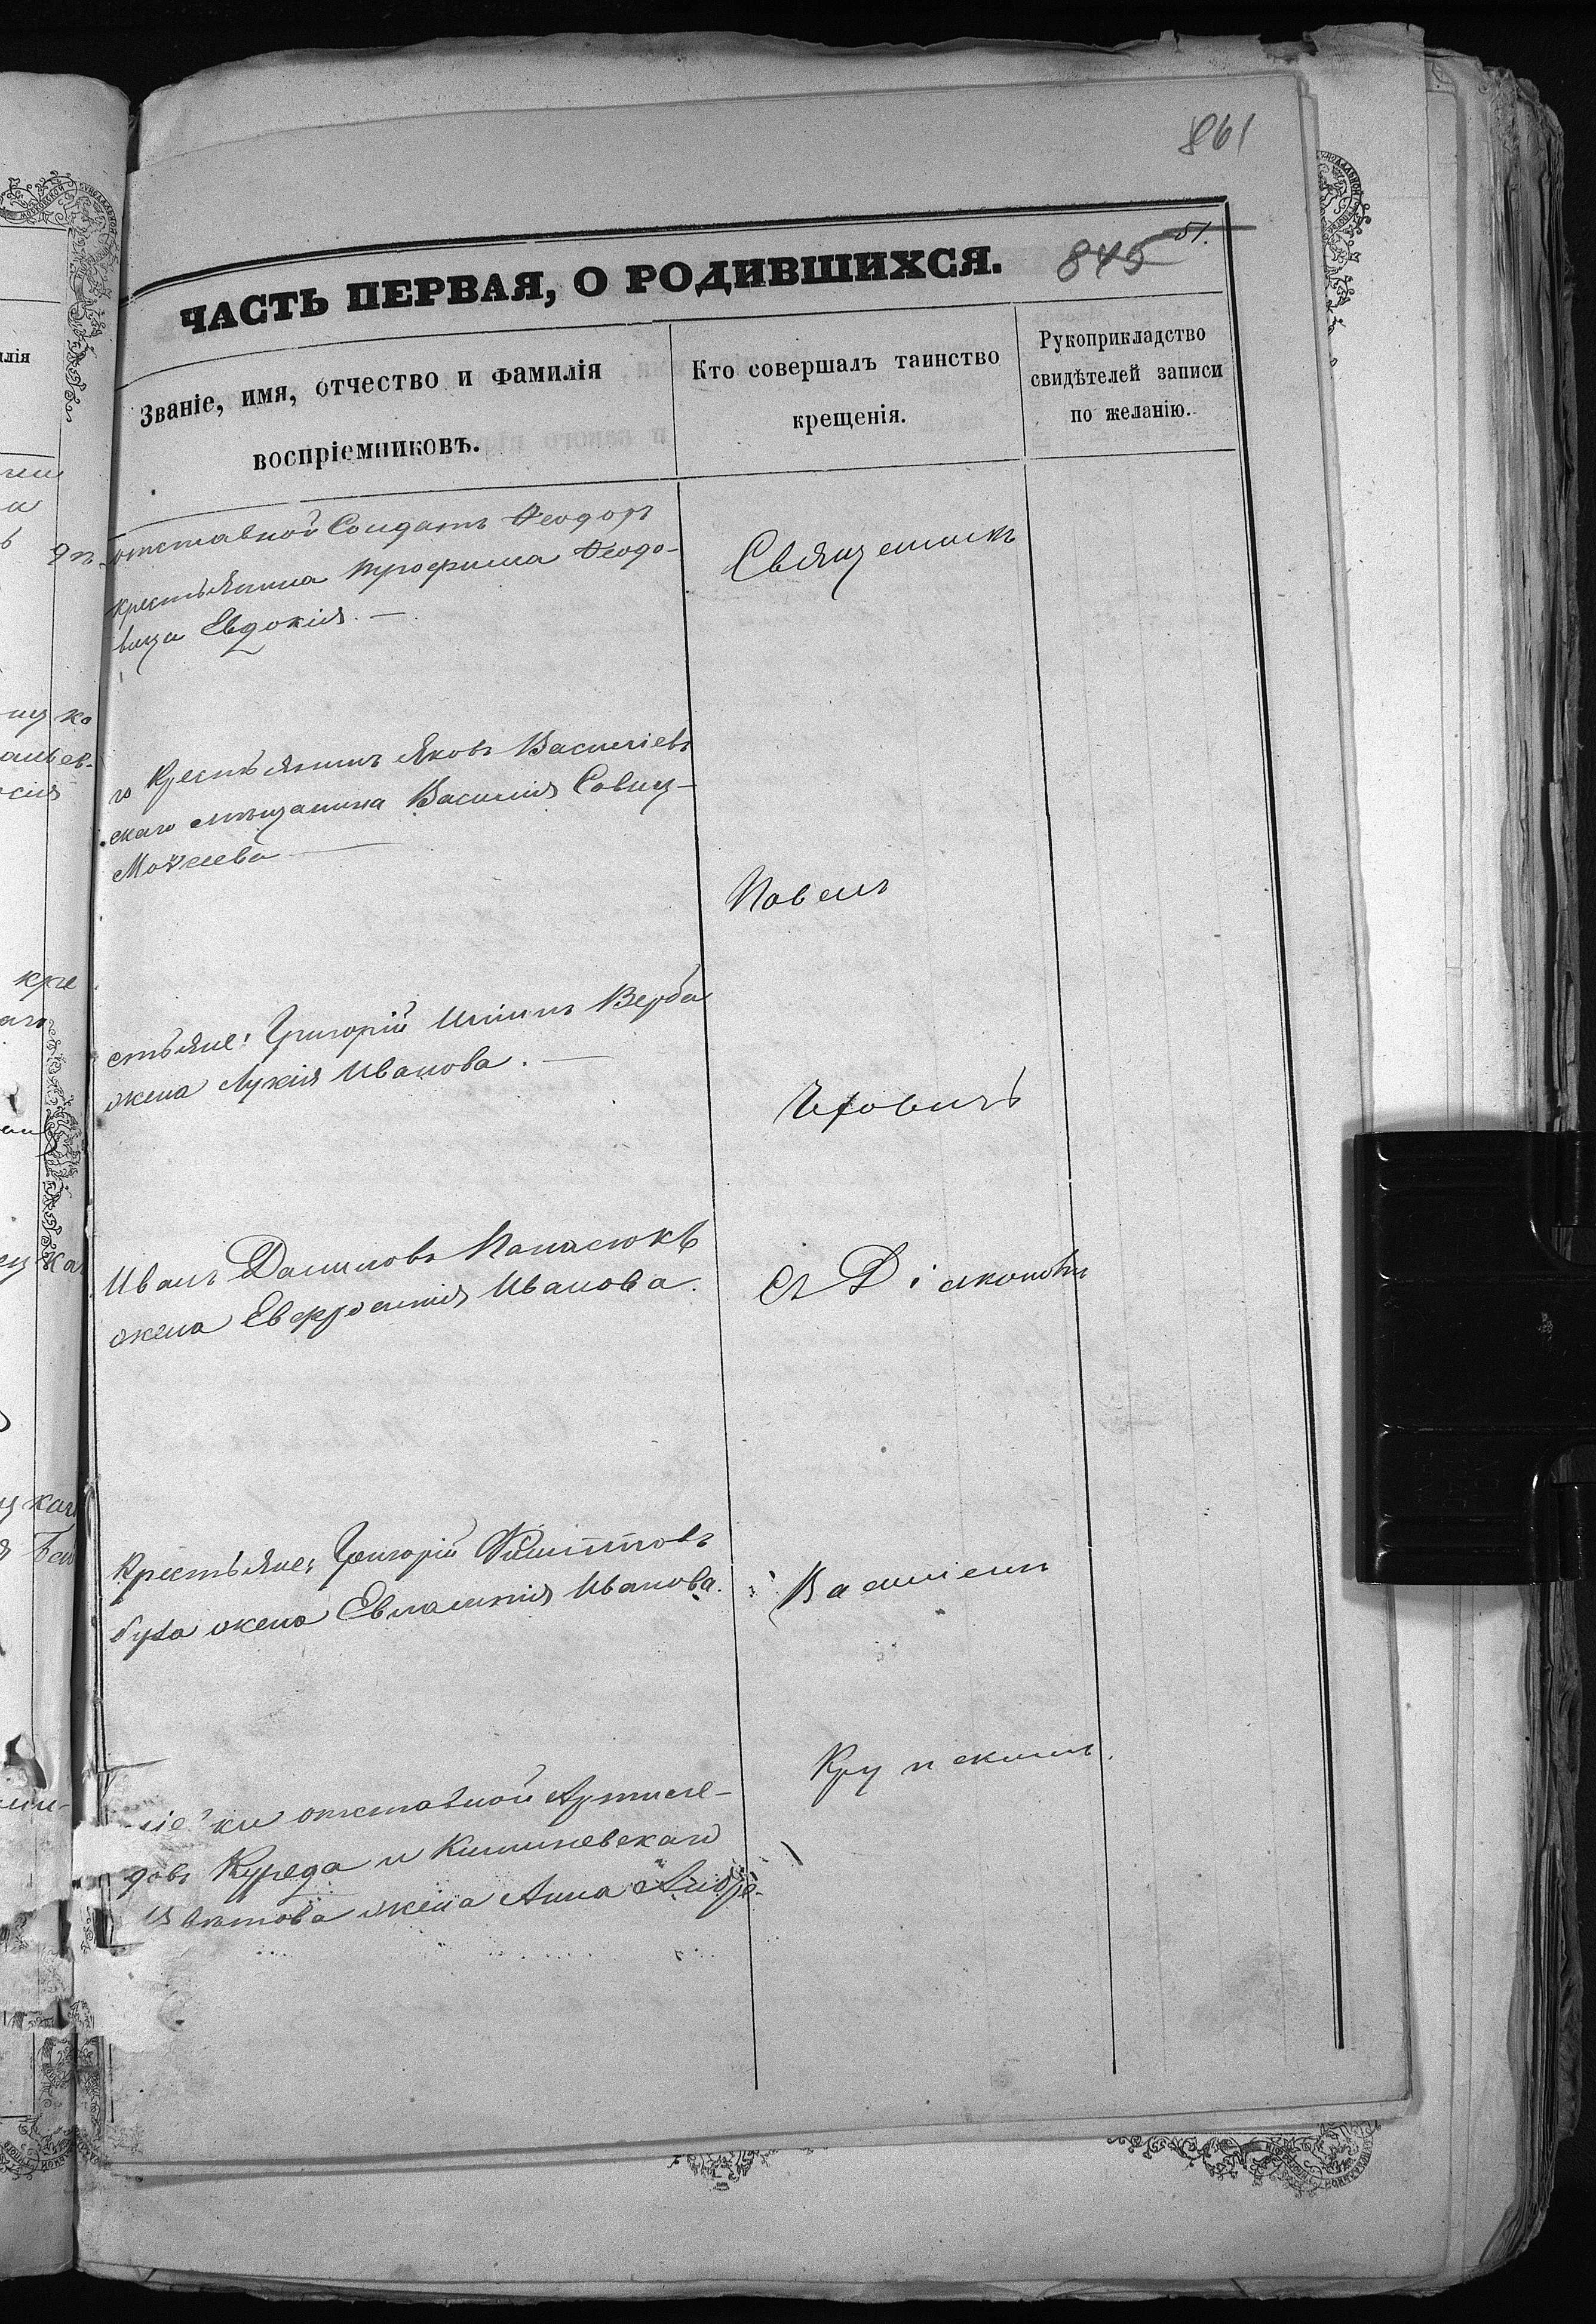 861
ЧАСТЬ ПЕРВАЯ, О РОДИВШИХСЯ.
845
51.
Званіе, имя, отчество и фамилія
воспріемниковъ.
Кто совершалъ таинство
крещенія.
Рукоприкладство
свидѣтелей записи
по желанію.
отставной Солдатъ Ѳеодоръ
крестьянина Трофима Ѳеодо-
вица Евдокія. —
Священникъ
Крестьянинъ Яковъ Василіевъ
скаго мѣщанина Василія Савиц-
Моѵсеева
Павелъ
стьяне: Григорій Иліинъ Верба
жена Лукія Иванова. —
Иванъ Даниловъ Панасюкъ
жена Евфросинія Иванова.
съ Діакономъ
Крестьяне: Григорій Филипповъ
жена Евлампія Иванова.
Василіемъ
отставной Артиле-
довъ Куреда и Кишиневскаго
жена Анна Андре-
Крупскимъ.